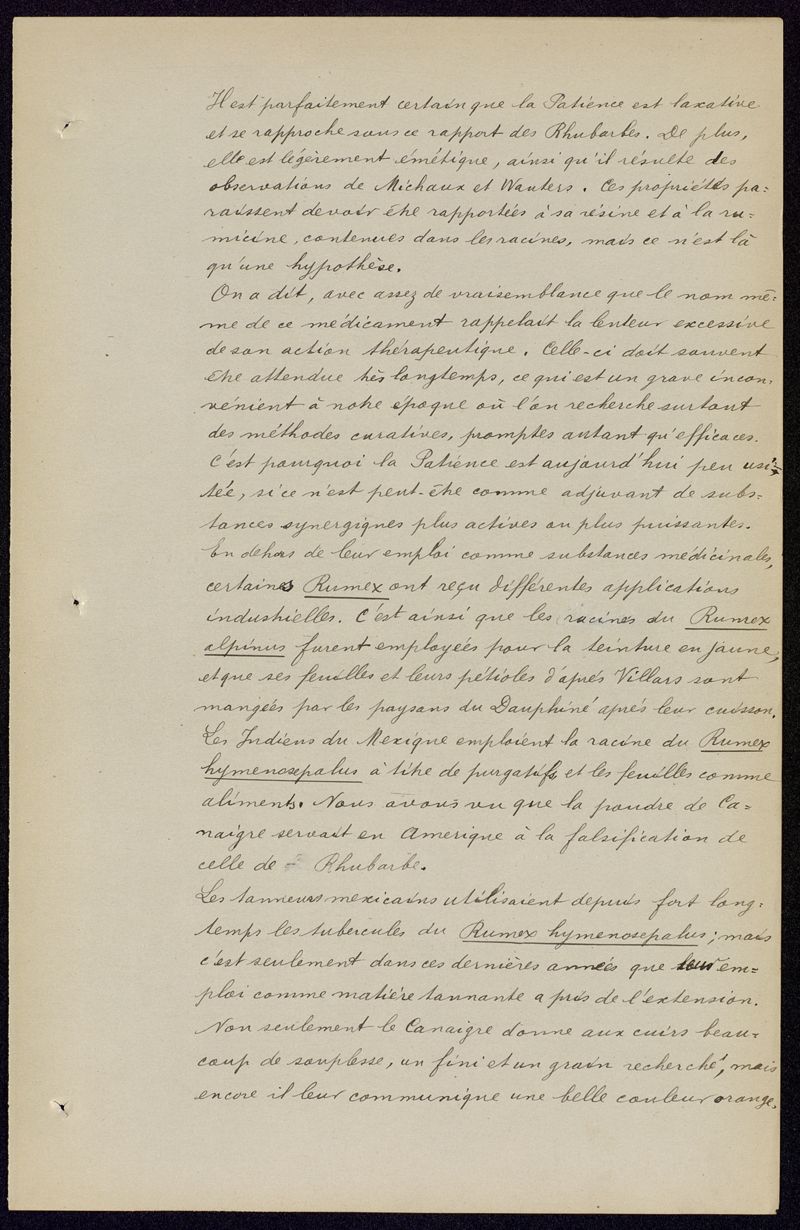 Il est parfaitement certain que la Patience est laxative
et se rapproche sous ce rapport des Rhubarbes. De plus,
elle est légèrement émétique, ainsi qu'il résulte des
observations de Michaux et Wauters. Ces propriétés pa-
raissent devoir être rapportées à sa résine et à la ru-
micine, contenues dans les racines, mais ce n'est là
qu'une hypothèse.
On a dit, avec assez de vraisemblance que le nom mê-
me de ce médicament rappelait la lenteur excessive
de son action thérapeutique. Celle-ci doit souvent
être attendue très longtemps, ce qui est un grave incon-
vénient à notre époque où l'on recherche surtout
des méthodes curatives, promptes autant qu'efficaces.
C'est pourquoi la Patience est aujourd'hui peu usi-
tée, si ce n'est peut-être comme adjuvant de subs-
tances synergiques plus actives ou plus puissantes.
En dehors de leur emploi comme substances médicinales,
certaines Rumex ont reçu différentes applications
industrielles. C'est ainsi que les racines du Rumex
alpinus furent employées pour la teinture en jaune,
et que ses feuilles et leurs pétioles d'après Villars sont
mangées par les paysans du Dauphiné après leur cuisson.
Les Indiens du Mexique emploient la racine du Rumex
hymenosepalus à titre de purgatifs et les feuilles comme
aliments. Nous avons vu que la poudre de Ca-
naigre servait en Amerique à la falsification de
celle de - Rhubarbe.
Les tanneurs mexicains utilisaient depuis fort long-
temps les tubercules du Rumex hymenosepalus; mais
c'est seulement dans ces dernières années que leur em-
ploi comme matière tannante a pris de l'extension.
Non seulement le Canaigre donne aux cuirs beau-
coup de souplesse, un fini et un grain recherché, mais
encore il leur communique une belle couleur orange.